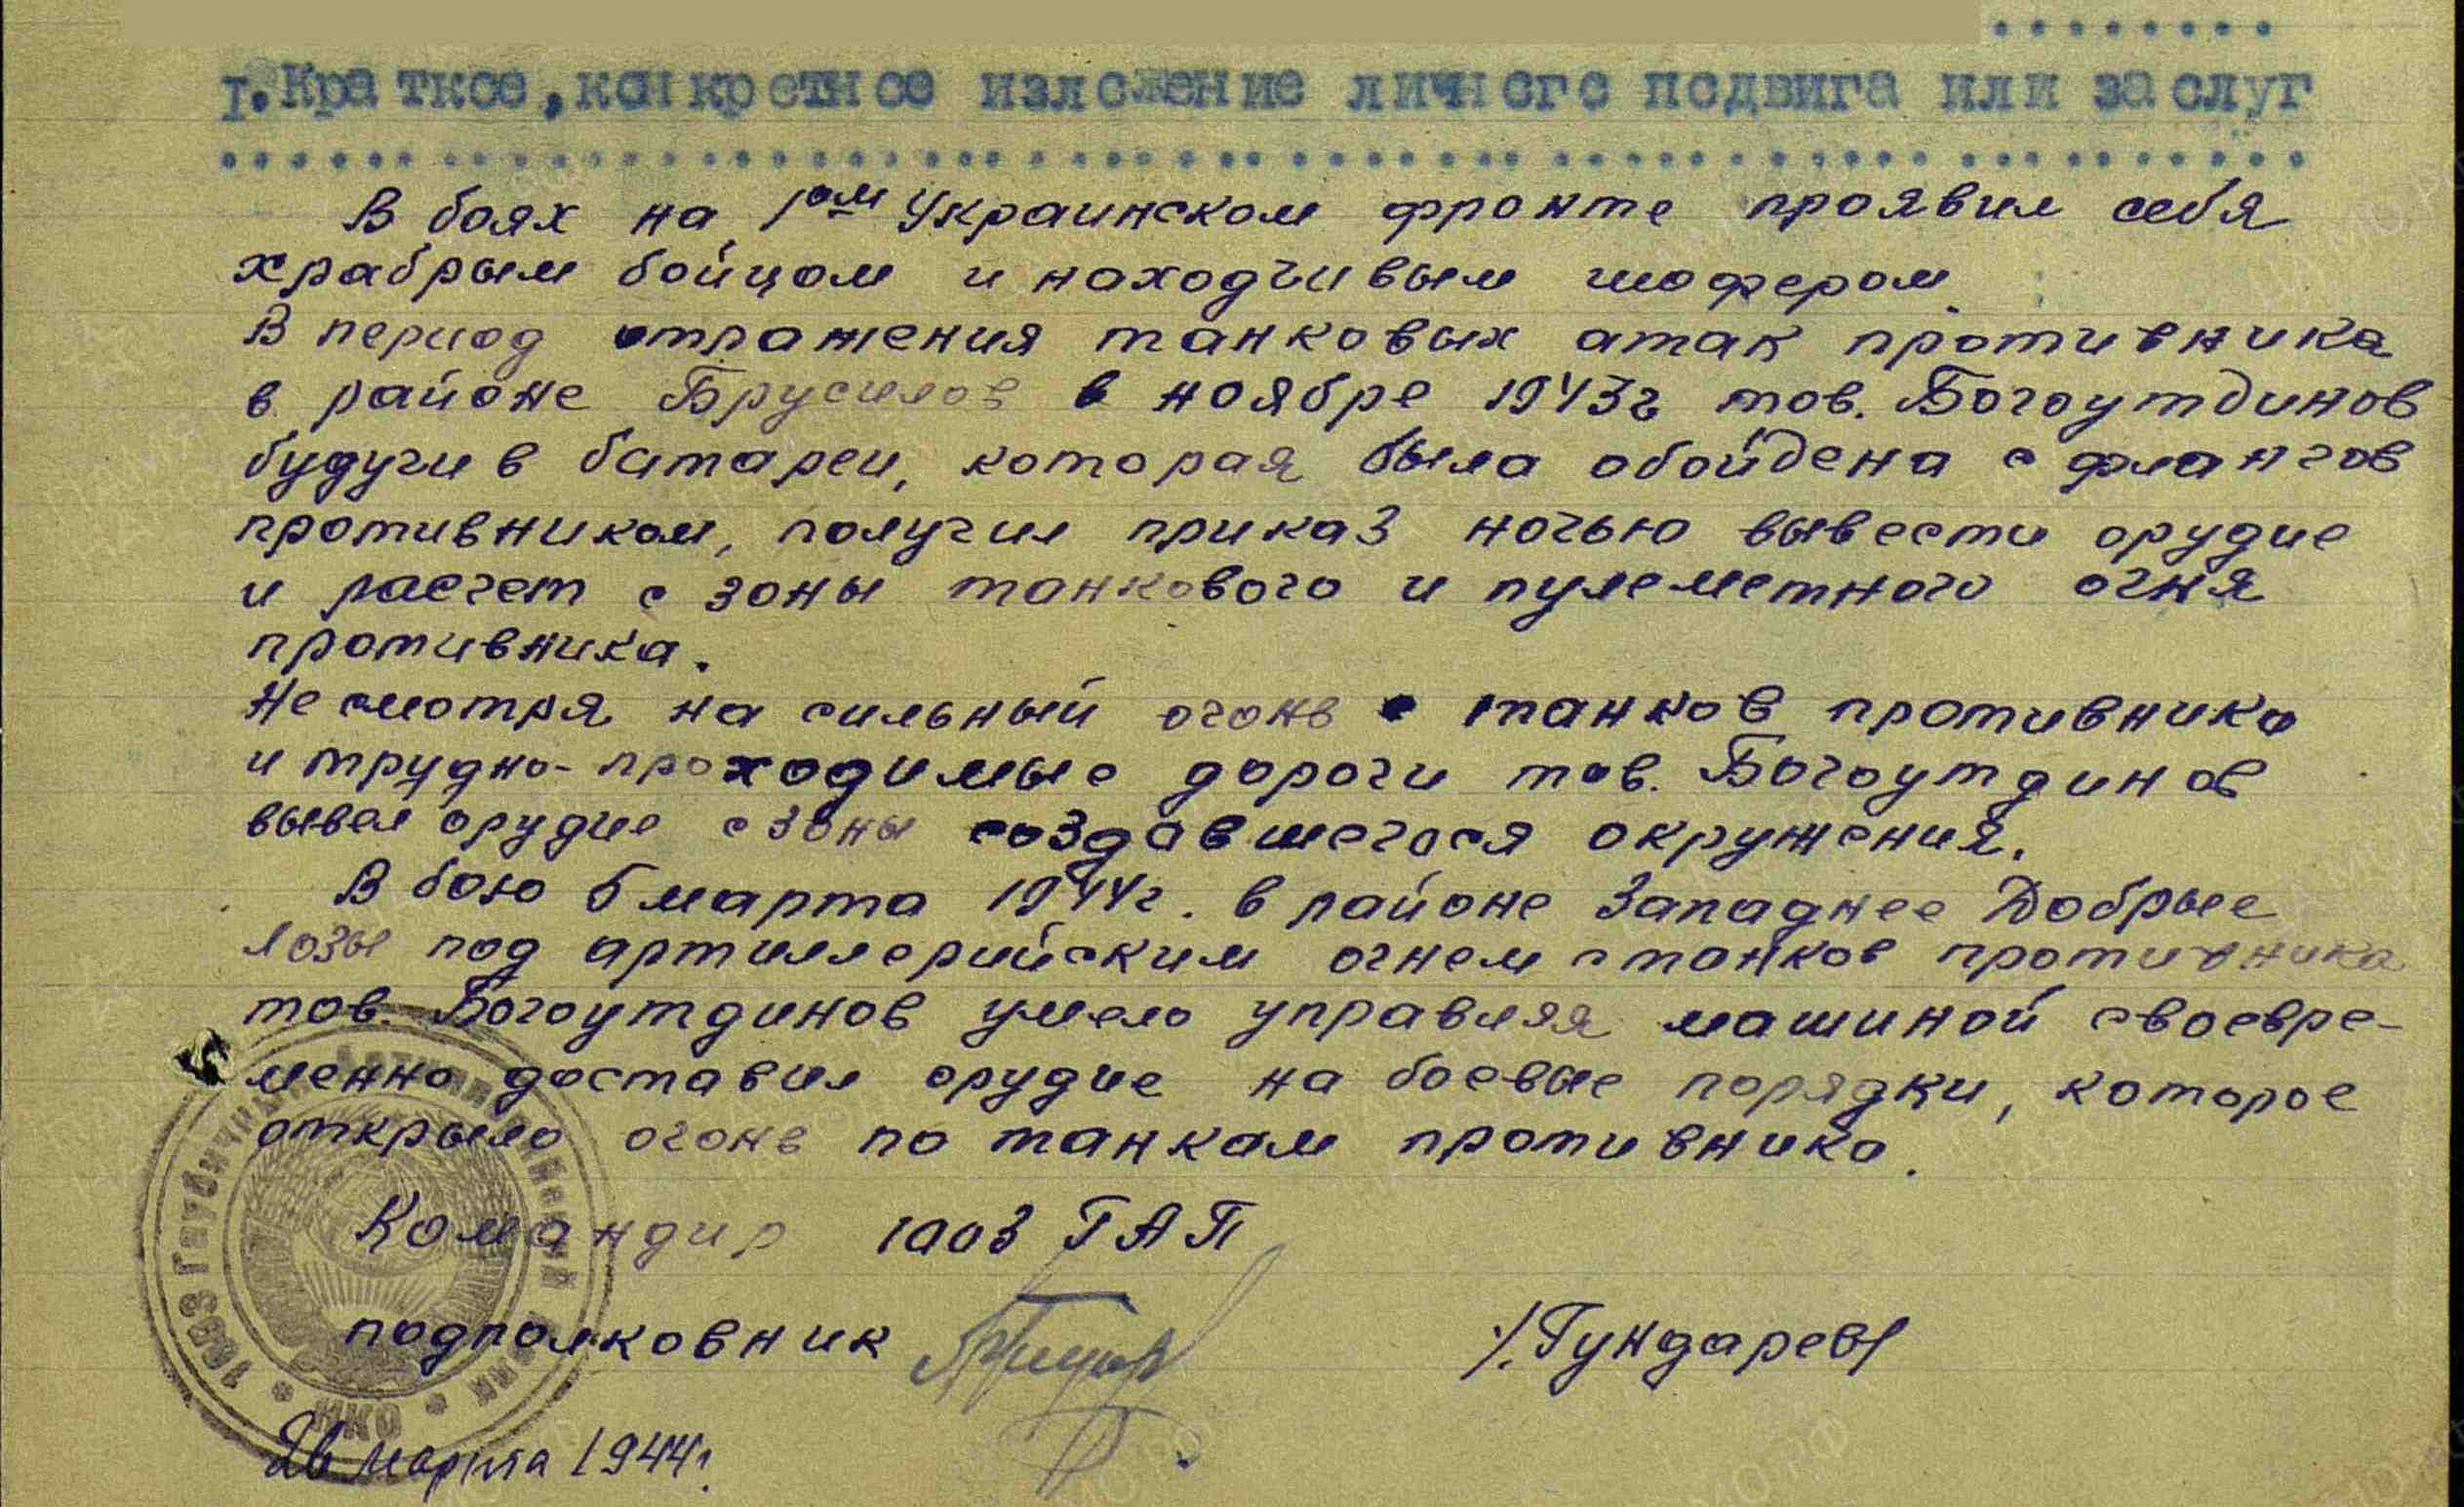 I. Краткое, конкретное изложение личного подвига или заслуг
В боях на 1ом Украинском фронте проявил себя
храбрым бойцом и находчивым шофером
В период отражения танковых атак противника
в районе Брусилов в ноябре 1943г тов. Богоутдинов
будучи в батареи, которая была обойдена с флангов
противником, получил приказ ночью вывести орудие
и расчет с зоны танкового и пулеметного огня
противника.
Не смотря на сильный огонь с танков противника
и трудно-проходимые дороги тов. Богоутдинов
вывел орудие с зоны создавшегося окружения.
В бою 5 марта 1944г. в районе Западнее Добрые
Лозы под артиллерийским огнем с танков противника
тов. Богоутдинов умело управляя машиной своевре-
менно доставил орудие на боевые порядки, которое
открыло огонь по танкам противника.
Командир 1003 ГАП
подполковник /Гундарев/
26 марта 1944г.
1003 Гаубичный Артиллерийский • НКО •